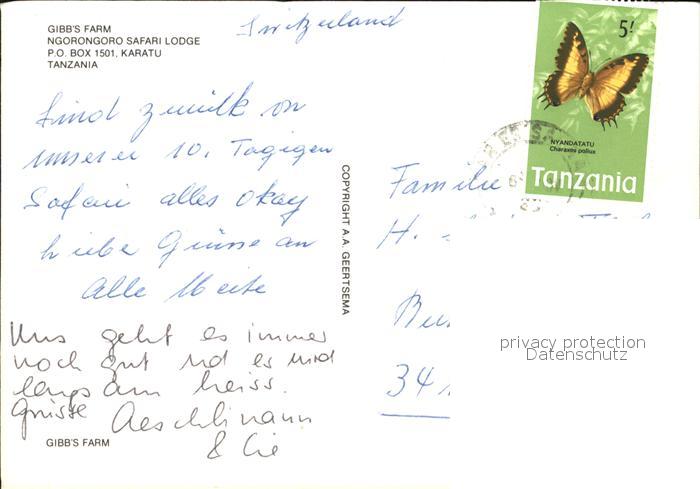 GIBB'S FARM
NGORONGORO SAFARI LODGE
P.O. BOX 1501, KARATU
TANZANIA
Switzerland
5/-
NYANDATATU
Charaxes pollux
Tanzania
Sind zurück von
unserer 10. Tagigen
Safari alles okay
Liebe Grüsse an
Alle
Uns geht es immer
noch gut und es wird
langsam heiss.
Grüsse Aeschlimann
& Cie
GIBB'S FARM
COPYRIGHT A.A. GEERTSEMA
Familie
H.
privacy protection
Datenschutz
34